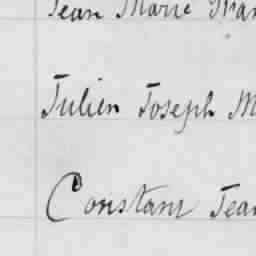 Jean Marie
Julien Joseph M
Constant Jean